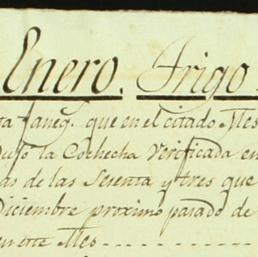 Enero. Trigo.
ra faneg. que en el citado Mes
dujo la Cochecha verificada en
as de las Sesenta y tres que
Diciembre proximo pasado de
en este Mes